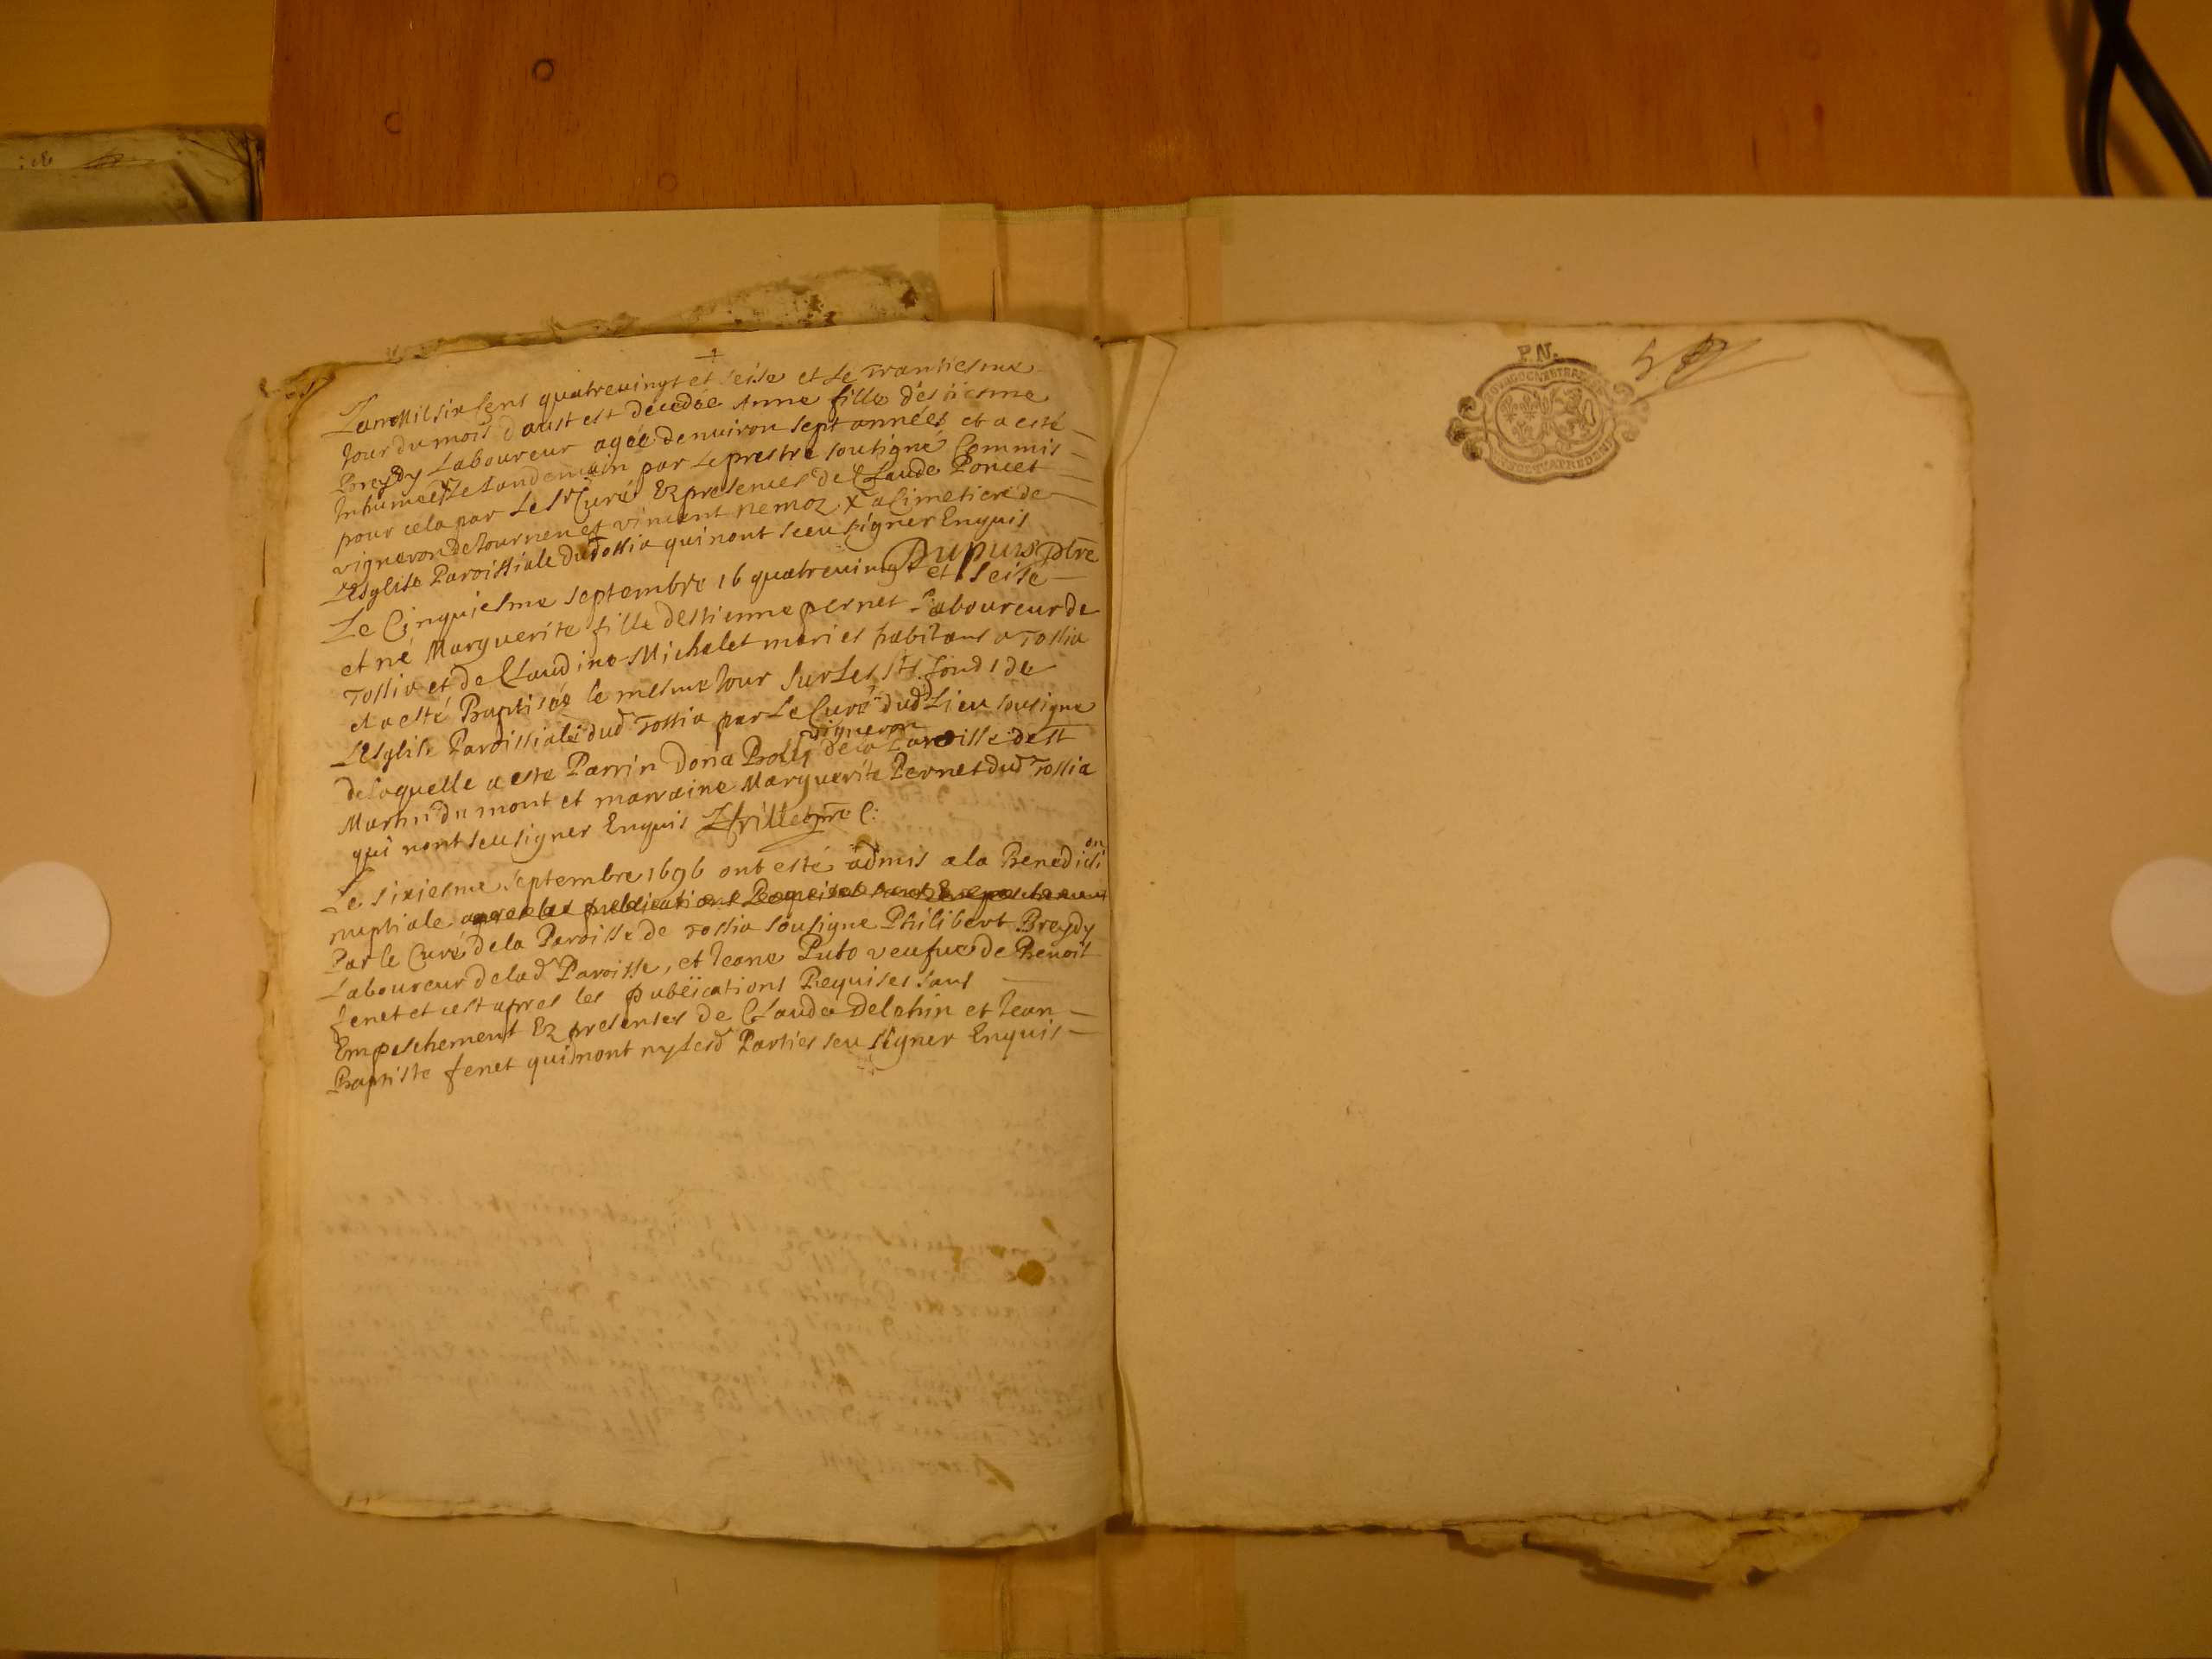 +
Lan Mil six Cens quatrevingt et seise et le Trantiesme
Jour du mois daust est decedée Anne fille destiesme
Breydy Laboureur agée denuiron sept années et a esté
Inhumée Le Landemain par Le prestre soutigné Commis
pour cela par Le Sr Curé Ez presences de Claude Poncet
vigneron de Journen et vincent nemoz x a Cimetiere de
LEsglise Paroissiale dud Tossia qui nont sceu signer Enquis
Dupuis ptre
Le Cinquiesme septembre 16 quatrevingt et seise
et né Marguerite fille destienne pernet Laboureur de
Tossia et de Claudine Michelet mariés habitans a Tossia
et a esté Baptisée le mesme Jour Sur Les Sts. fond de
LEsglise Paroissiale dud Tossia par Le Curé dud Lieu sousigne
vigneron
de Laquelle a esté Parrin Dona de la Paroisse de St
Martin du mont et marraine Marguerite Pernet dud Tossia
qui nont seu signer Enquis ptre C:
Le sixiesme septembre 1696 ont esté admis a la Benedicti
on
nuptiale apres les publications Requises sans Empeschement
Par le Curé de la Paroisse de Tossia sousigne Philibert Breydy
Laboureur de lad Paroisse, et Jeane Puto veufue de Benoit
fenet et cest apres les publications Requises sans
Empeschement Ez presenses de Claude Delphin et Jean
Baptiste fenet qui nont ny Lesd Parties seu signer Enquis
P.N.
5